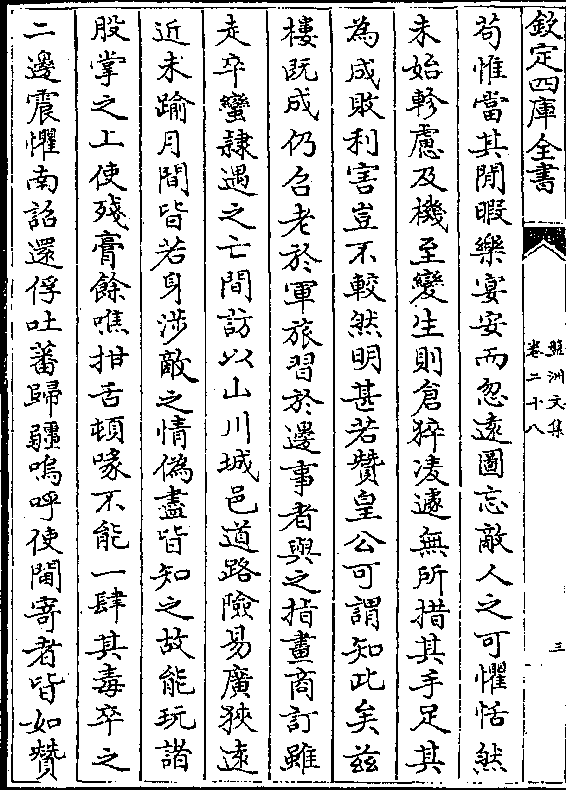 欽定四庫全書
盤洲文集
卷二十八
三
苟惟當其閒暇樂宴安而忽遠圖忘敵人之可懼恬然
未始軫慮及機至變生則倉猝凌遽無所措其手足其
為成敗利害豈不較然明甚若贊皇公可謂知此矣兹
樓既成仍召老於軍旅習於邊事者與之指畫商訂雖
走卒蠻隷遇之亡間訪以山川城邑道路險易廣狹遠
近未踰月間皆若身涉敵之情偽盡皆知之故能玩諸
股掌之上使殘膏餘噍拑舌頓喙不能一肆其毒卒之
二邊震懼南詔還俘吐蕃歸疆嗚呼使閫寄者皆如贊